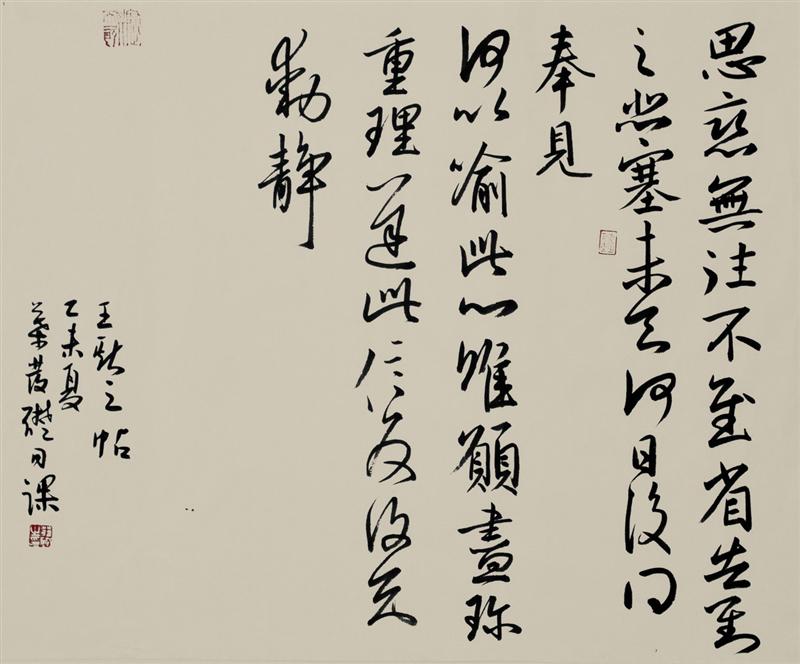 思戀無往不至省告對
之悲塞未知何日復得
奉見
何以喻此心惟願盡珍
重理遲此信反復知
動靜
王献之帖
乙未夏
葉礎日課